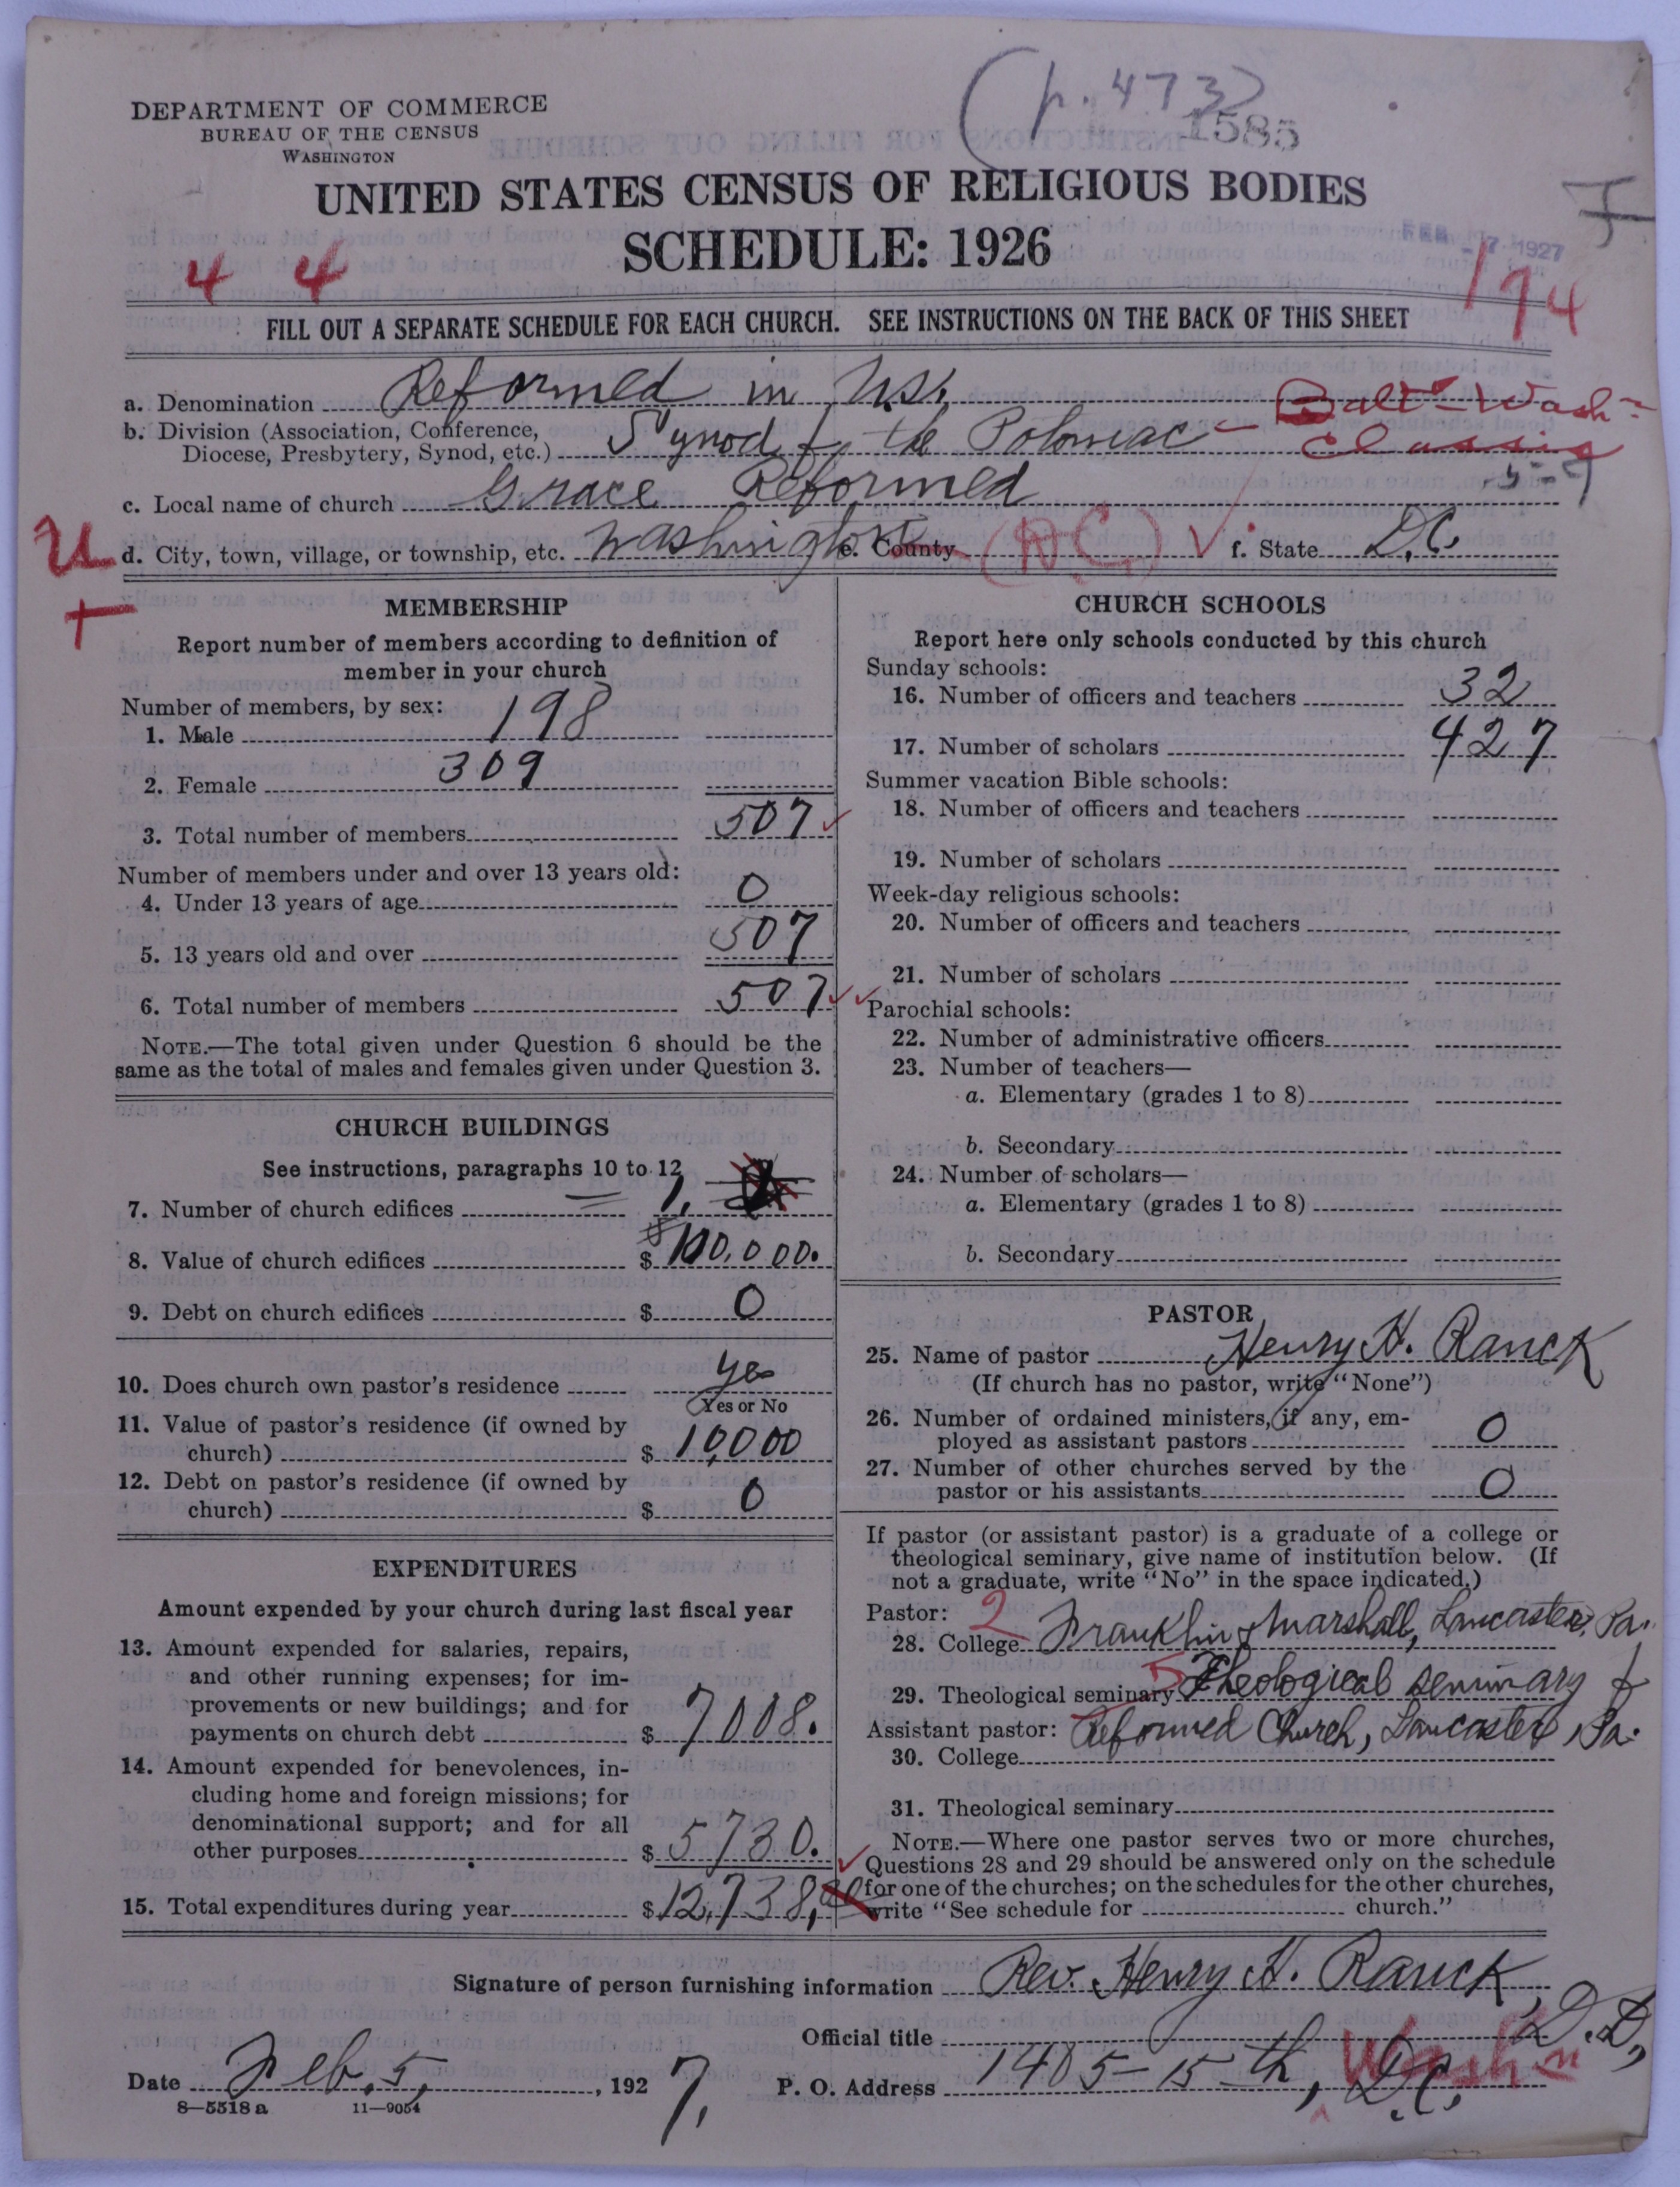 (p. 473)
1585
DEPARTMENT OF COMMERCE
BUREAU OF THE CENSUS
WASHINGTON
UNITED STATES CENSUS OF RELIGIOUS BODIES
SCHEDULE: 1926
FEB -7 1927
4 4
174
FILL OUT A SEPARATE SCHEDULE FOR EACH CHURCH. SEE INSTRUCTIONS ON THE BACK OF THIS SHEET
a. Denomination Reformed in U.S.
b. Division (Association, Conference, Diocese, Presbytery, Synod, etc.) Synod of the Potomac - Balto-Wash'n Classis
5-7
c. Local name of church Grace Reformed
d. City, town, village, or township, etc. Washington e. County (DC) f. State D.C.
U
+
MEMBERSHIP
Report number of members according to definition of
member in your church
Number of members, by sex:
1. Male 198
2. Female 309
3. Total number of members 507
Number of members under and over 13 years old:
4. Under 13 years of age 0
5. 13 years old and over 507
6. Total number of members 507
NOTE.—The total given under Question 6 should be the
same as the total of males and females given under Question 3.
CHURCH BUILDINGS
See instructions, paragraphs 10 to 12
7. Number of church edifices 1.
8. Value of church edifices $ $100,000.
9. Debt on church edifices $ 0
10. Does church own pastor's residence yes
Yes or No
11. Value of pastor's residence (if owned by
church) $ 10,000
12. Debt on pastor's residence (if owned by
church) $ 0
EXPENDITURES
Amount expended by your church during last fiscal year
13. Amount expended for salaries, repairs,
and other running expenses; for im-
provements or new buildings; and for
payments on church debt $ 7008.
14. Amount expended for benevolences, in-
cluding home and foreign missions; for
denominational support; and for all
other purposes $ 5730.
15. Total expenditures during year $ 12,738,
CHURCH SCHOOLS
Report here only schools conducted by this church
Sunday schools:
16. Number of officers and teachers 32
17. Number of scholars 427
Summer vacation Bible schools:
18. Number of officers and teachers
19. Number of scholars
Week-day religious schools:
20. Number of officers and teachers
21. Number of scholars
Parochial schools:
22. Number of administrative officers
23. Number of teachers—
a. Elementary (grades 1 to 8)
b. Secondary
24. Number of scholars—
a. Elementary (grades 1 to 8)
b. Secondary
PASTOR
25. Name of pastor Henry H. Ranck
(If church has no pastor, write "None")
26. Number of ordained ministers, if any, em-
ployed as assistant pastors 0
27. Number of other churches served by the
pastor or his assistants 0
If pastor (or assistant pastor) is a graduate of a college or
theological seminary, give name of institution below. (If
not a graduate, write "No" in the space indicated.)
Pastor: 2
28. College Franklin & Marshall, Lancaster, Pa.
29. Theological seminary 5 Theological Seminary of
Assistant pastor: Reformed Church, Lancaster, Pa.
30. College
31. Theological seminary
NOTE.—Where one pastor serves two or more churches,
Questions 28 and 29 should be answered only on the schedule
for one of the churches; on the schedules for the other churches,
write "See schedule for church."
Signature of person furnishing information Rev. Henry H. Ranck, D.D.,
Official title
Date Feb. 5, , 1927. P. O. Address 1405-15th, Wash'n D.C.
8—5518 a 11—9054